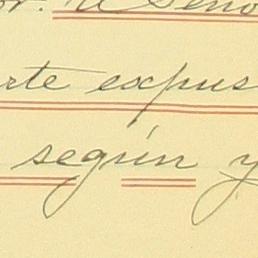 or. a Seño
rte expus
según y